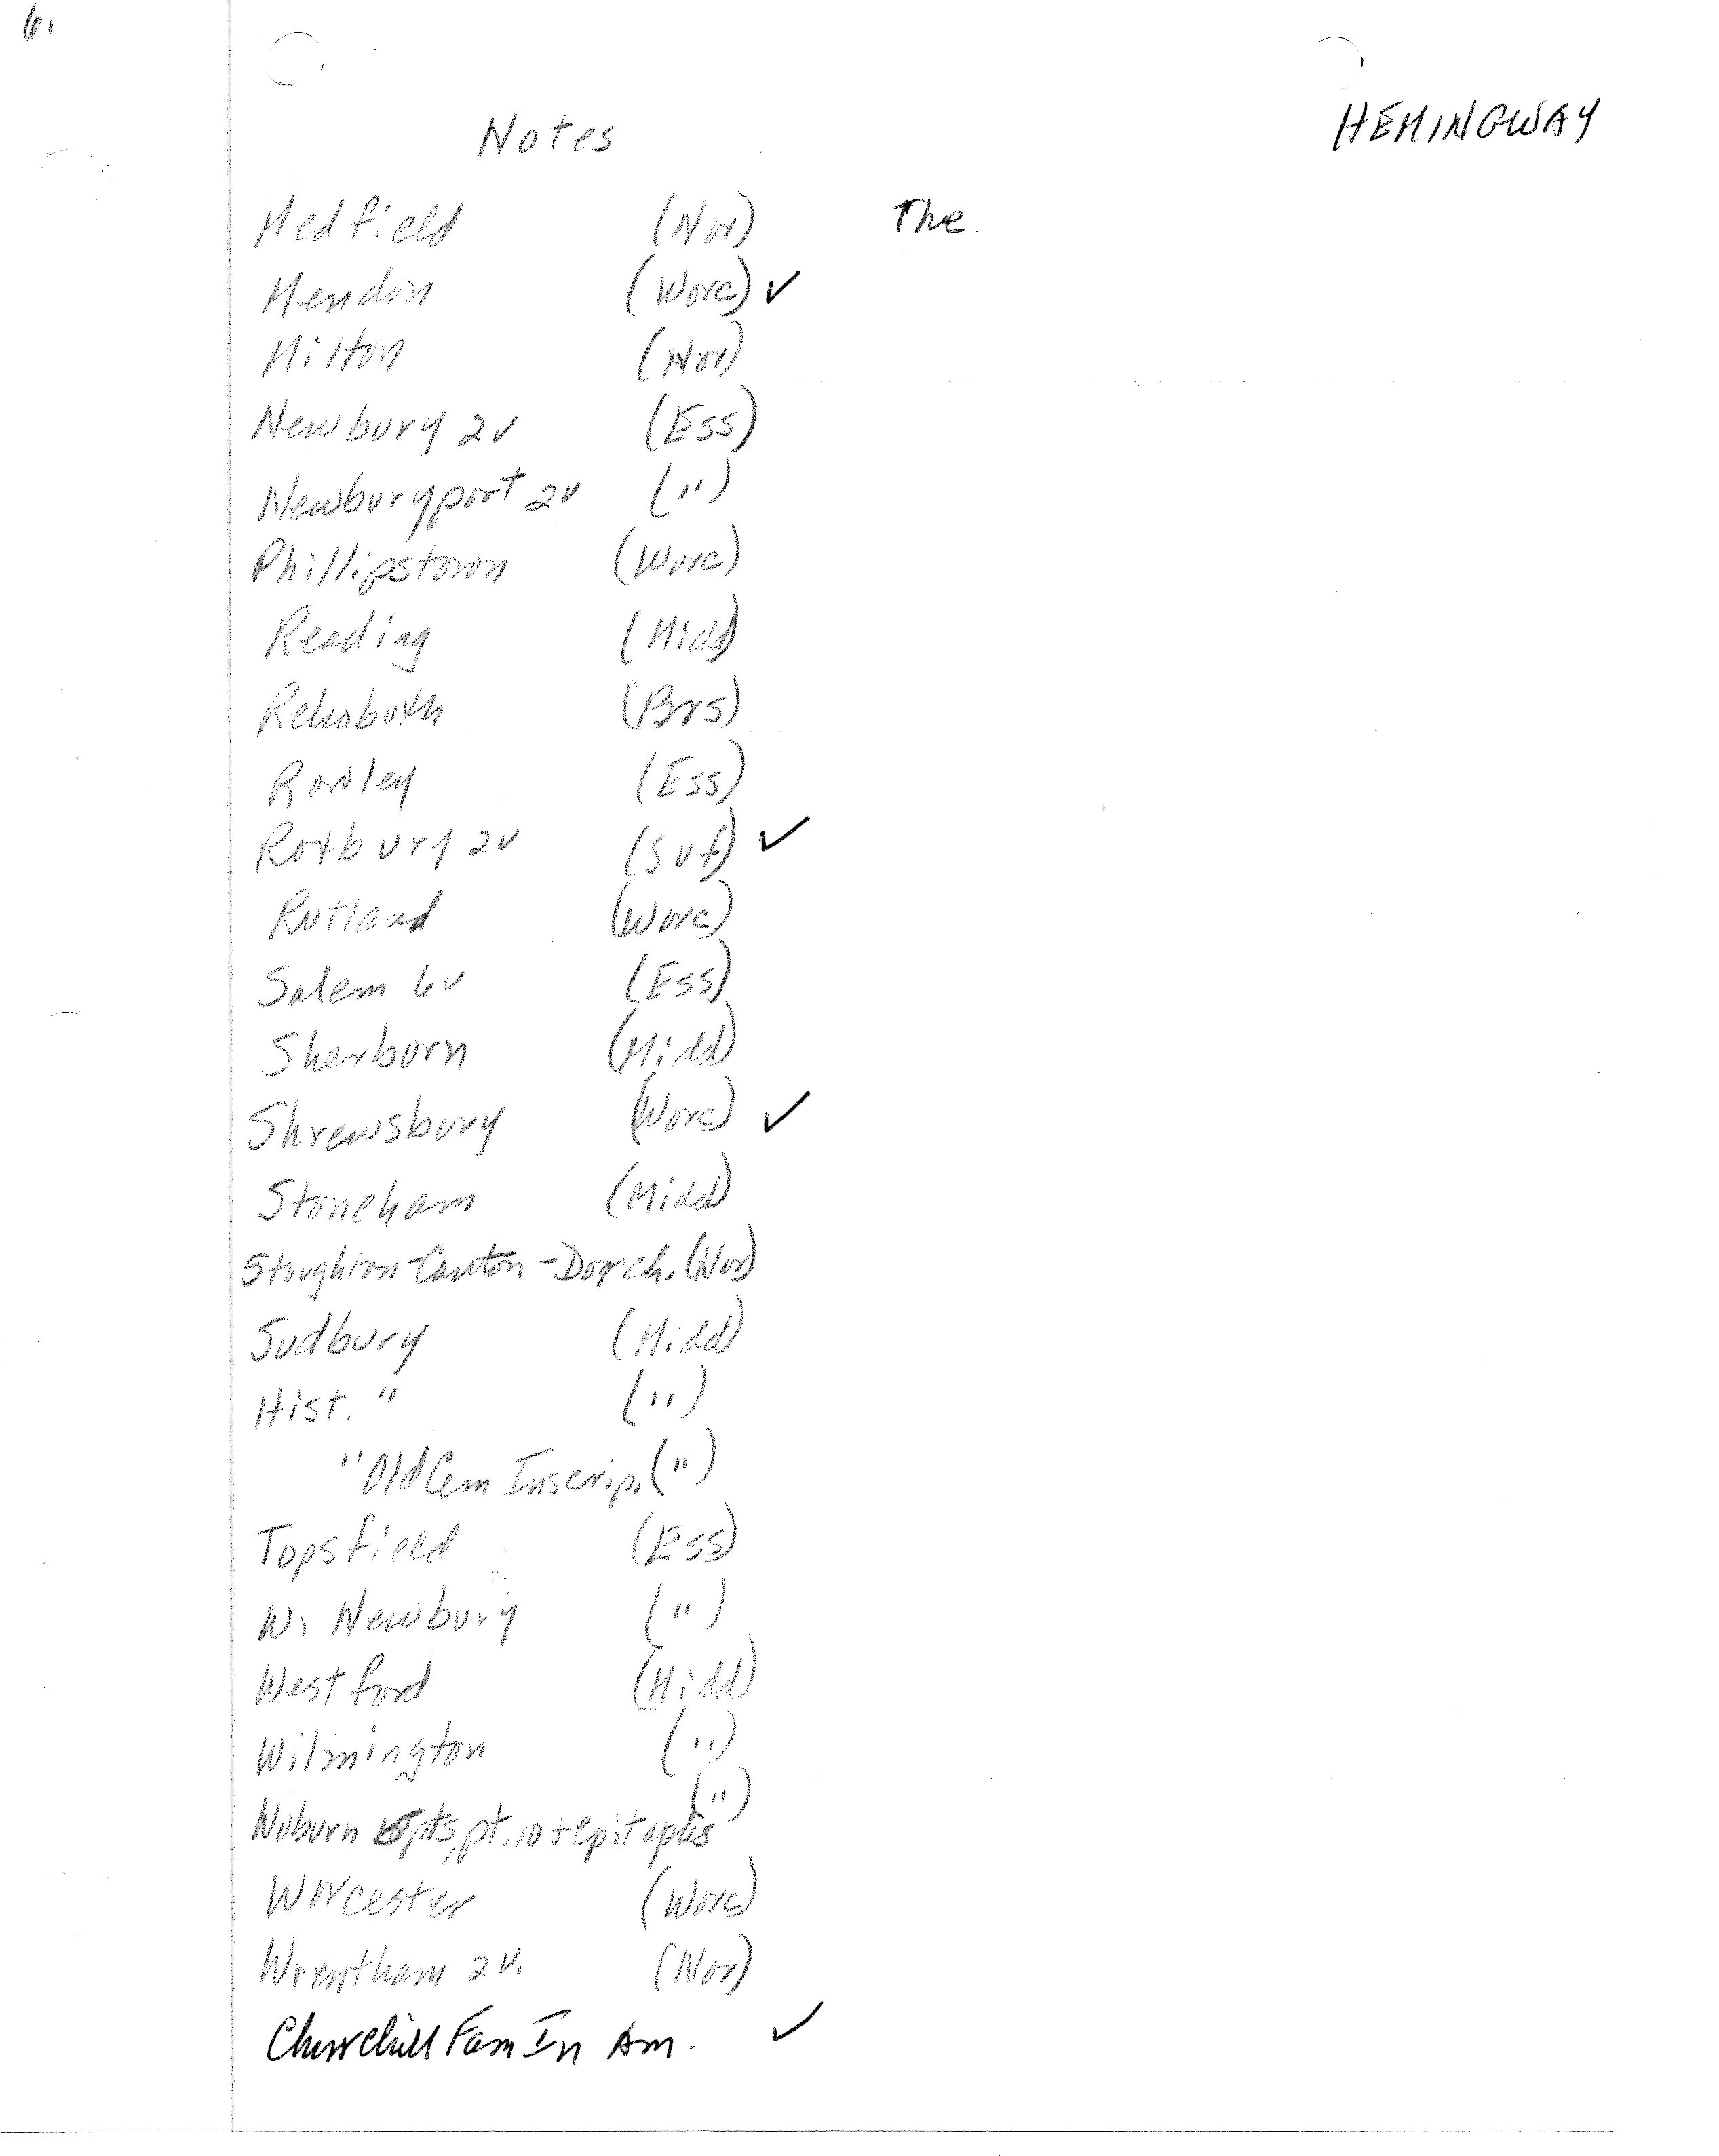 6.
Notes
HEMINGWAY
Medfield (Nor) The
Mendon (Worc) ✓
Milton (Nor)
Newbury 2v (Ess)
Newburyport 2v (")
Phillipstown (Worc)
Reading (Midd)
Rehoboth (Brs)
Rowley (Ess)
Roxbury 2v (Suf) ✓
Rutland (Worc)
Salem 6v (Ess)
Sherborn (Midd)
Shrewsbury (Worc) ✓
Stoneham (Midd)
Stoughton-Canton-Dorch. (Nor)
Sudbury (Midd)
Hist. " (")
"Old Cem Inscrip. (")
Topsfield (Ess)
W. Newbury (")
Westford (Midd)
Wilmington (")
(")
Woburn pts, pt. 10 + epitaphs
Worcester (Worc)
Wrentham 2v. (Nor)
Churchill Fam In Am. ✓